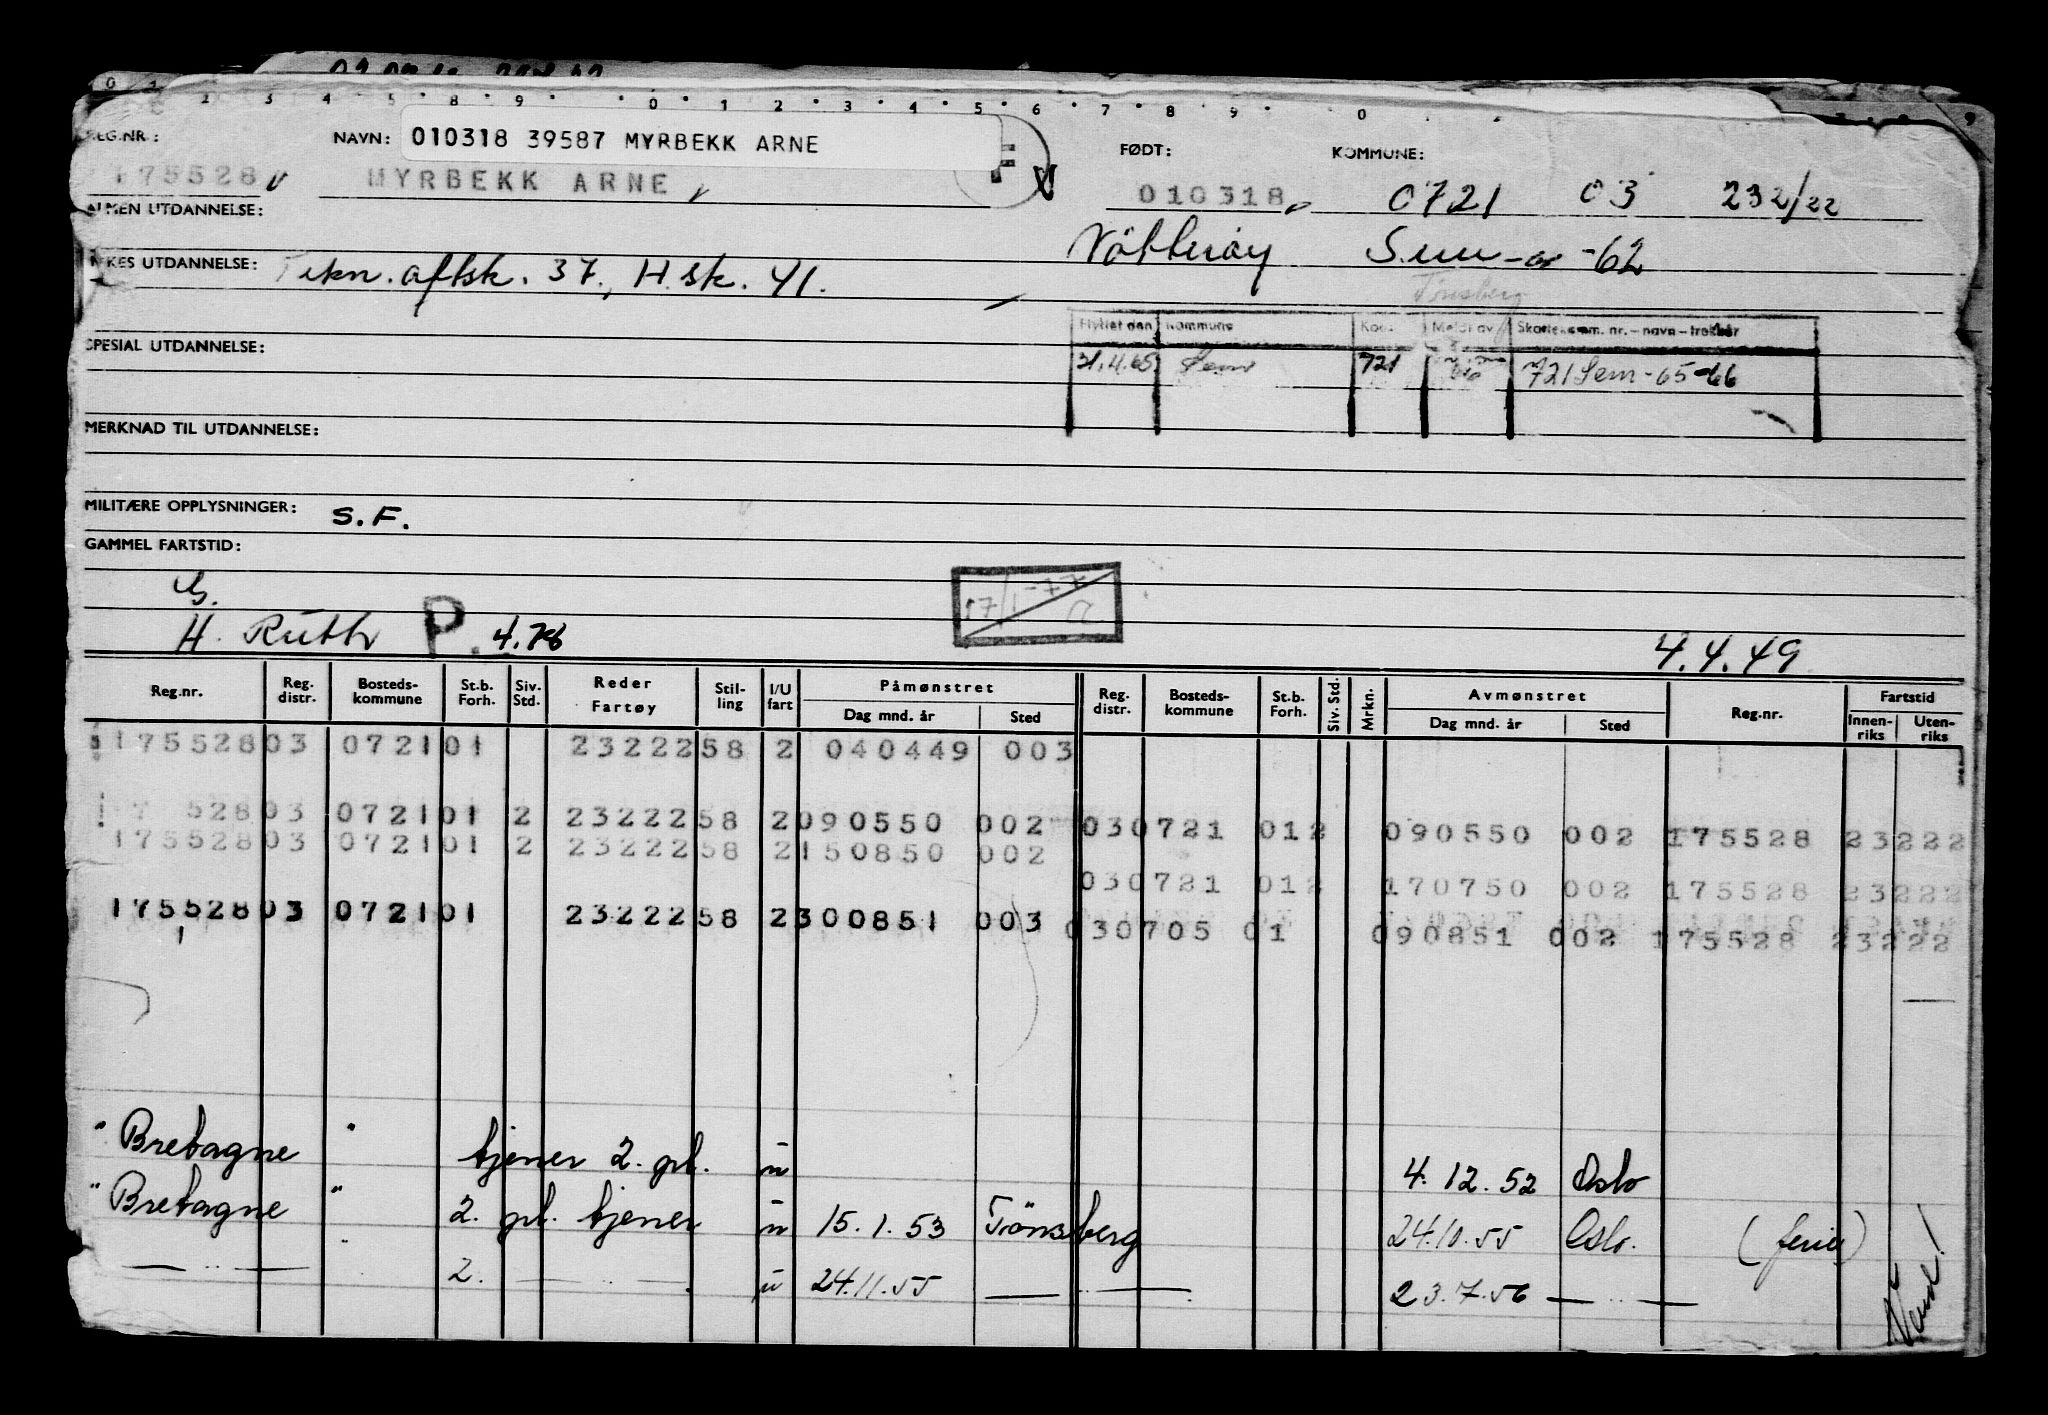 REG.NR.:
NAVN: 010318 39587 MYRBEKK ARNE
FØDT:
KOMMUNE:
175528
MYRBEKK ARNE
F
010318
0721 03 232/22
ALMEN UTDANNELSE:
Nötteröy Sem -62
YRKES UTDANNELSE: Tekn. aftsk. 37., H.sk. 41.
Tönsberg
Flyttet den Kommune Kode Meldt av Skattekomm. nr. – navn – trekkår
21.4.65 Sem 721 721 Sem -65-66
SPESIAL UTDANNELSE:
MERKNAD TIL UTDANNELSE:
MILITÆRE OPPLYSNINGER: S.F.
GAMMEL FARTSTID:
G.
17/1-77
H. Ruth P. 4.78
4.4.49
Reg.nr. Reg. distr. Bosteds-kommune St.b. Forh. Siv. Std. Reder Fartøy Stil-ling I/U fart Påmønstret Dag mnd. år Sted Reg. distr. Bosteds-kommune St.b. Forh. Siv. Std. Mrkn. Avmønstret Dag mnd. år Sted Reg.nr. Fartstid Innen-riks Uten-riks
175528 03 0721 01 23222 58 2 040449 003
528 03 0721 01 2 23222 58 2 090550 002 03 0721 01 2 090550 002 175528 23222
175528 03 0721 01 2 23222 58 2 150850 002
03 0721 01 2 170750 002 175528 23222
175528 03 0721 01 23222 58 2 300851 003
03 0705 01 090851 002 175528 23222
"Bretagne" tjener 2. pl. u 4.12.52 Oslo
"Bretagne" 2. pl. tjener u 15.1.53 Tönsberg 24.10.55 Oslo. (ferie)
— " — 2. — " — u 24.11.55 — " — 23.7.56 — " —
Vend!